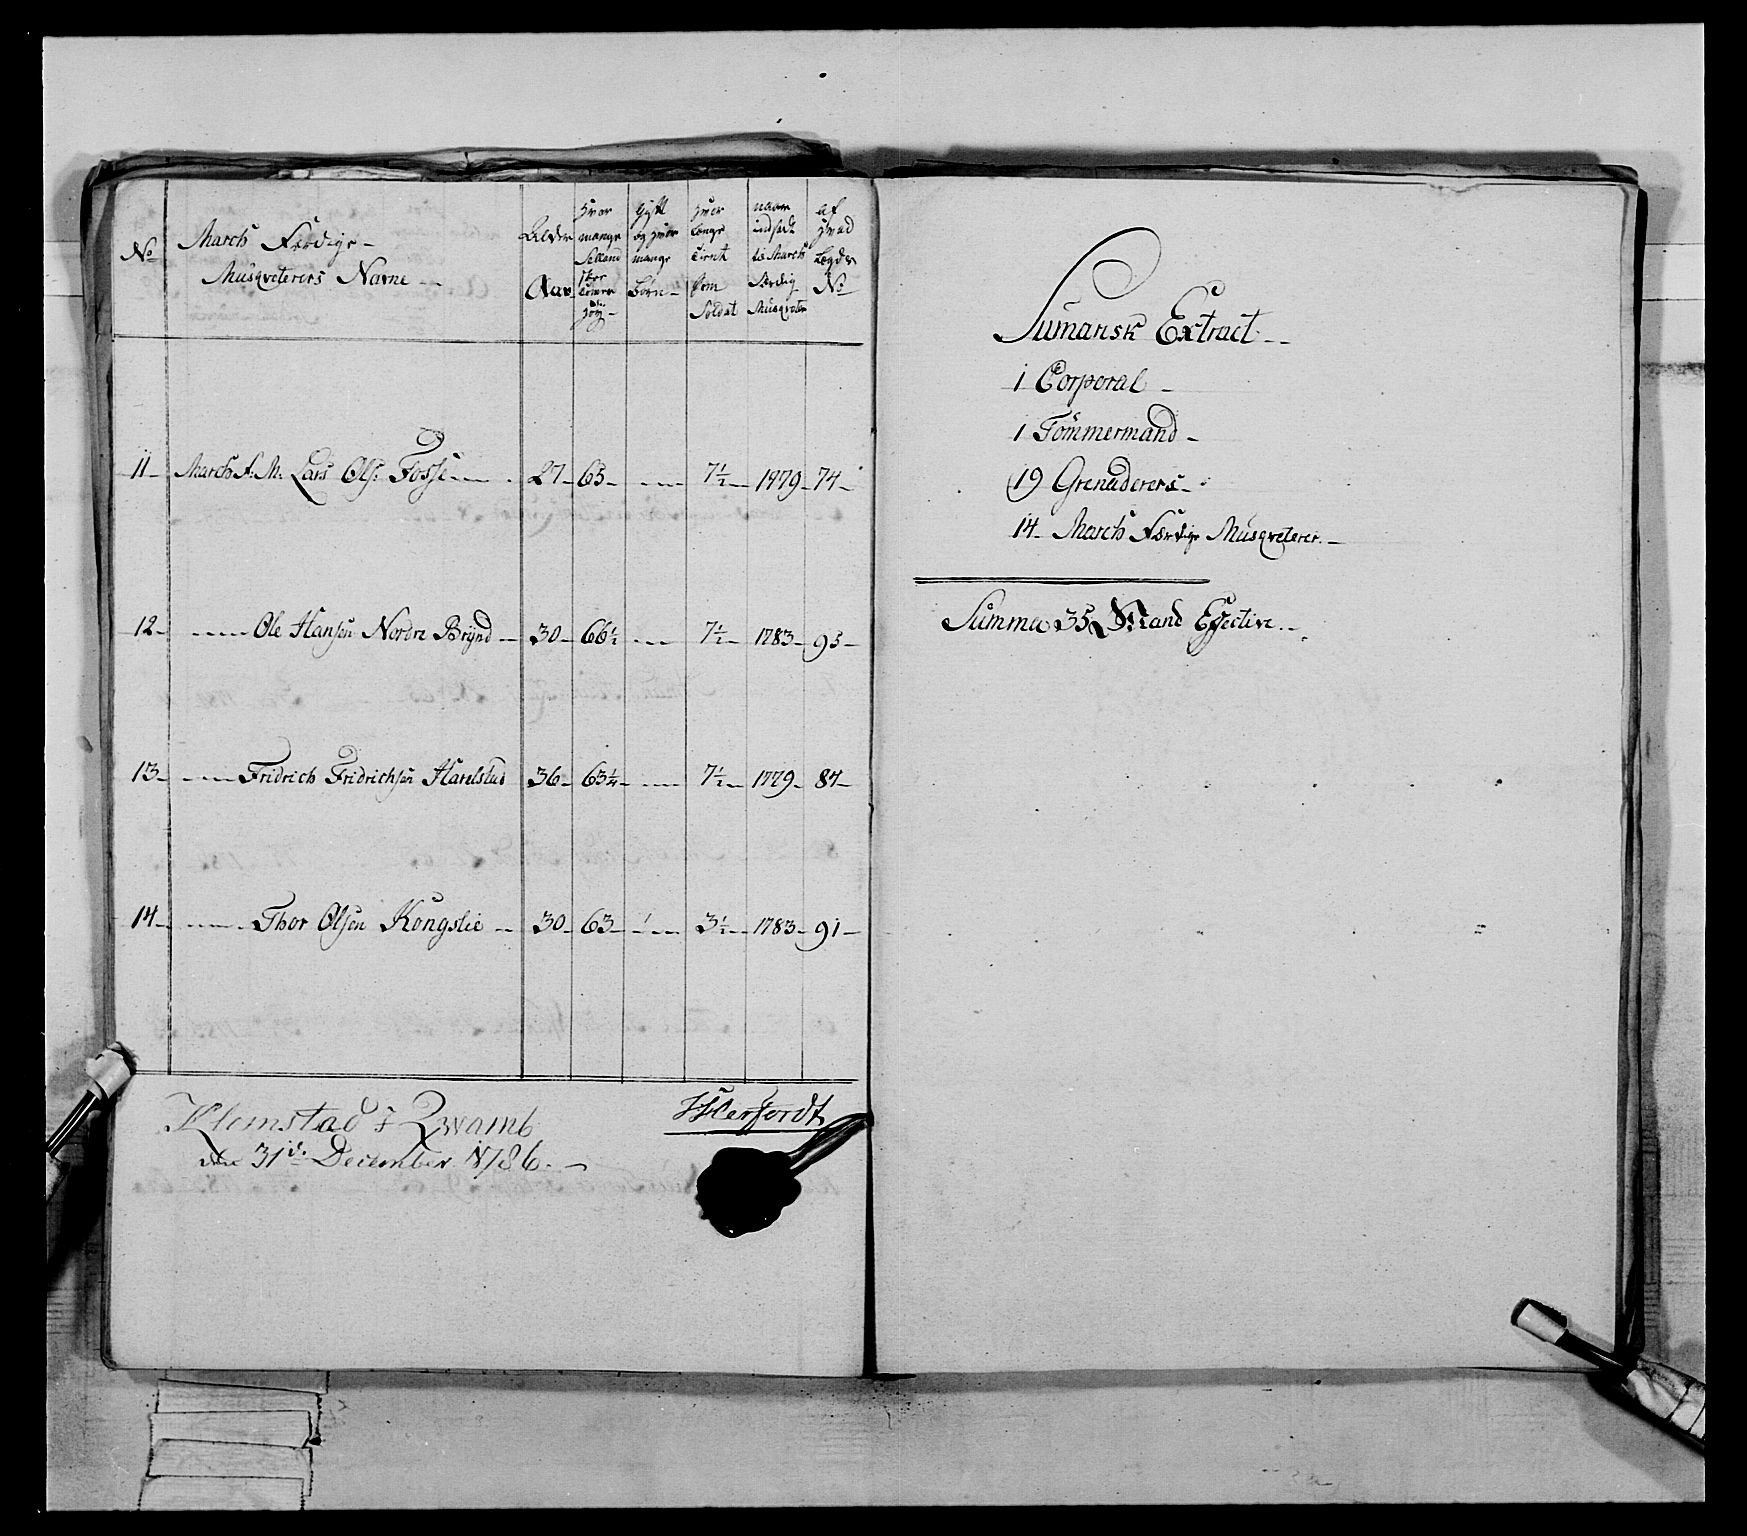 No
March Færdige
Musqveterers Navne
Alder
Aar
hvor
mange
Selland
sker
Tomer
høy
Gift
og hvor
mange
børn
hvor
længe
tient
som
Soldat
naar
indsadt
til March
Færdig
Musqveter
af
hvad
Lægder
No
11 March F. M. Lars Ols: Fosse 27 63 7½ 1779 74
12 Ole Hansen Nordre Brynd 30 66½ 7½ 1783 93
13 Fridrich Fridrichsen Harelstad 36 63¼ 7½ 1779 87
14 Thor Olsen Kongslie 30 63 1 3½ 1783 91
Klemstad i Qwamb
den 31te December 1786.
Herfordt
Sumarisk Extract
1 Corporal
1 Tömmermand
19 Grenaderers
14 March Færdige Musqveterer
Summa 35 Mand Effective